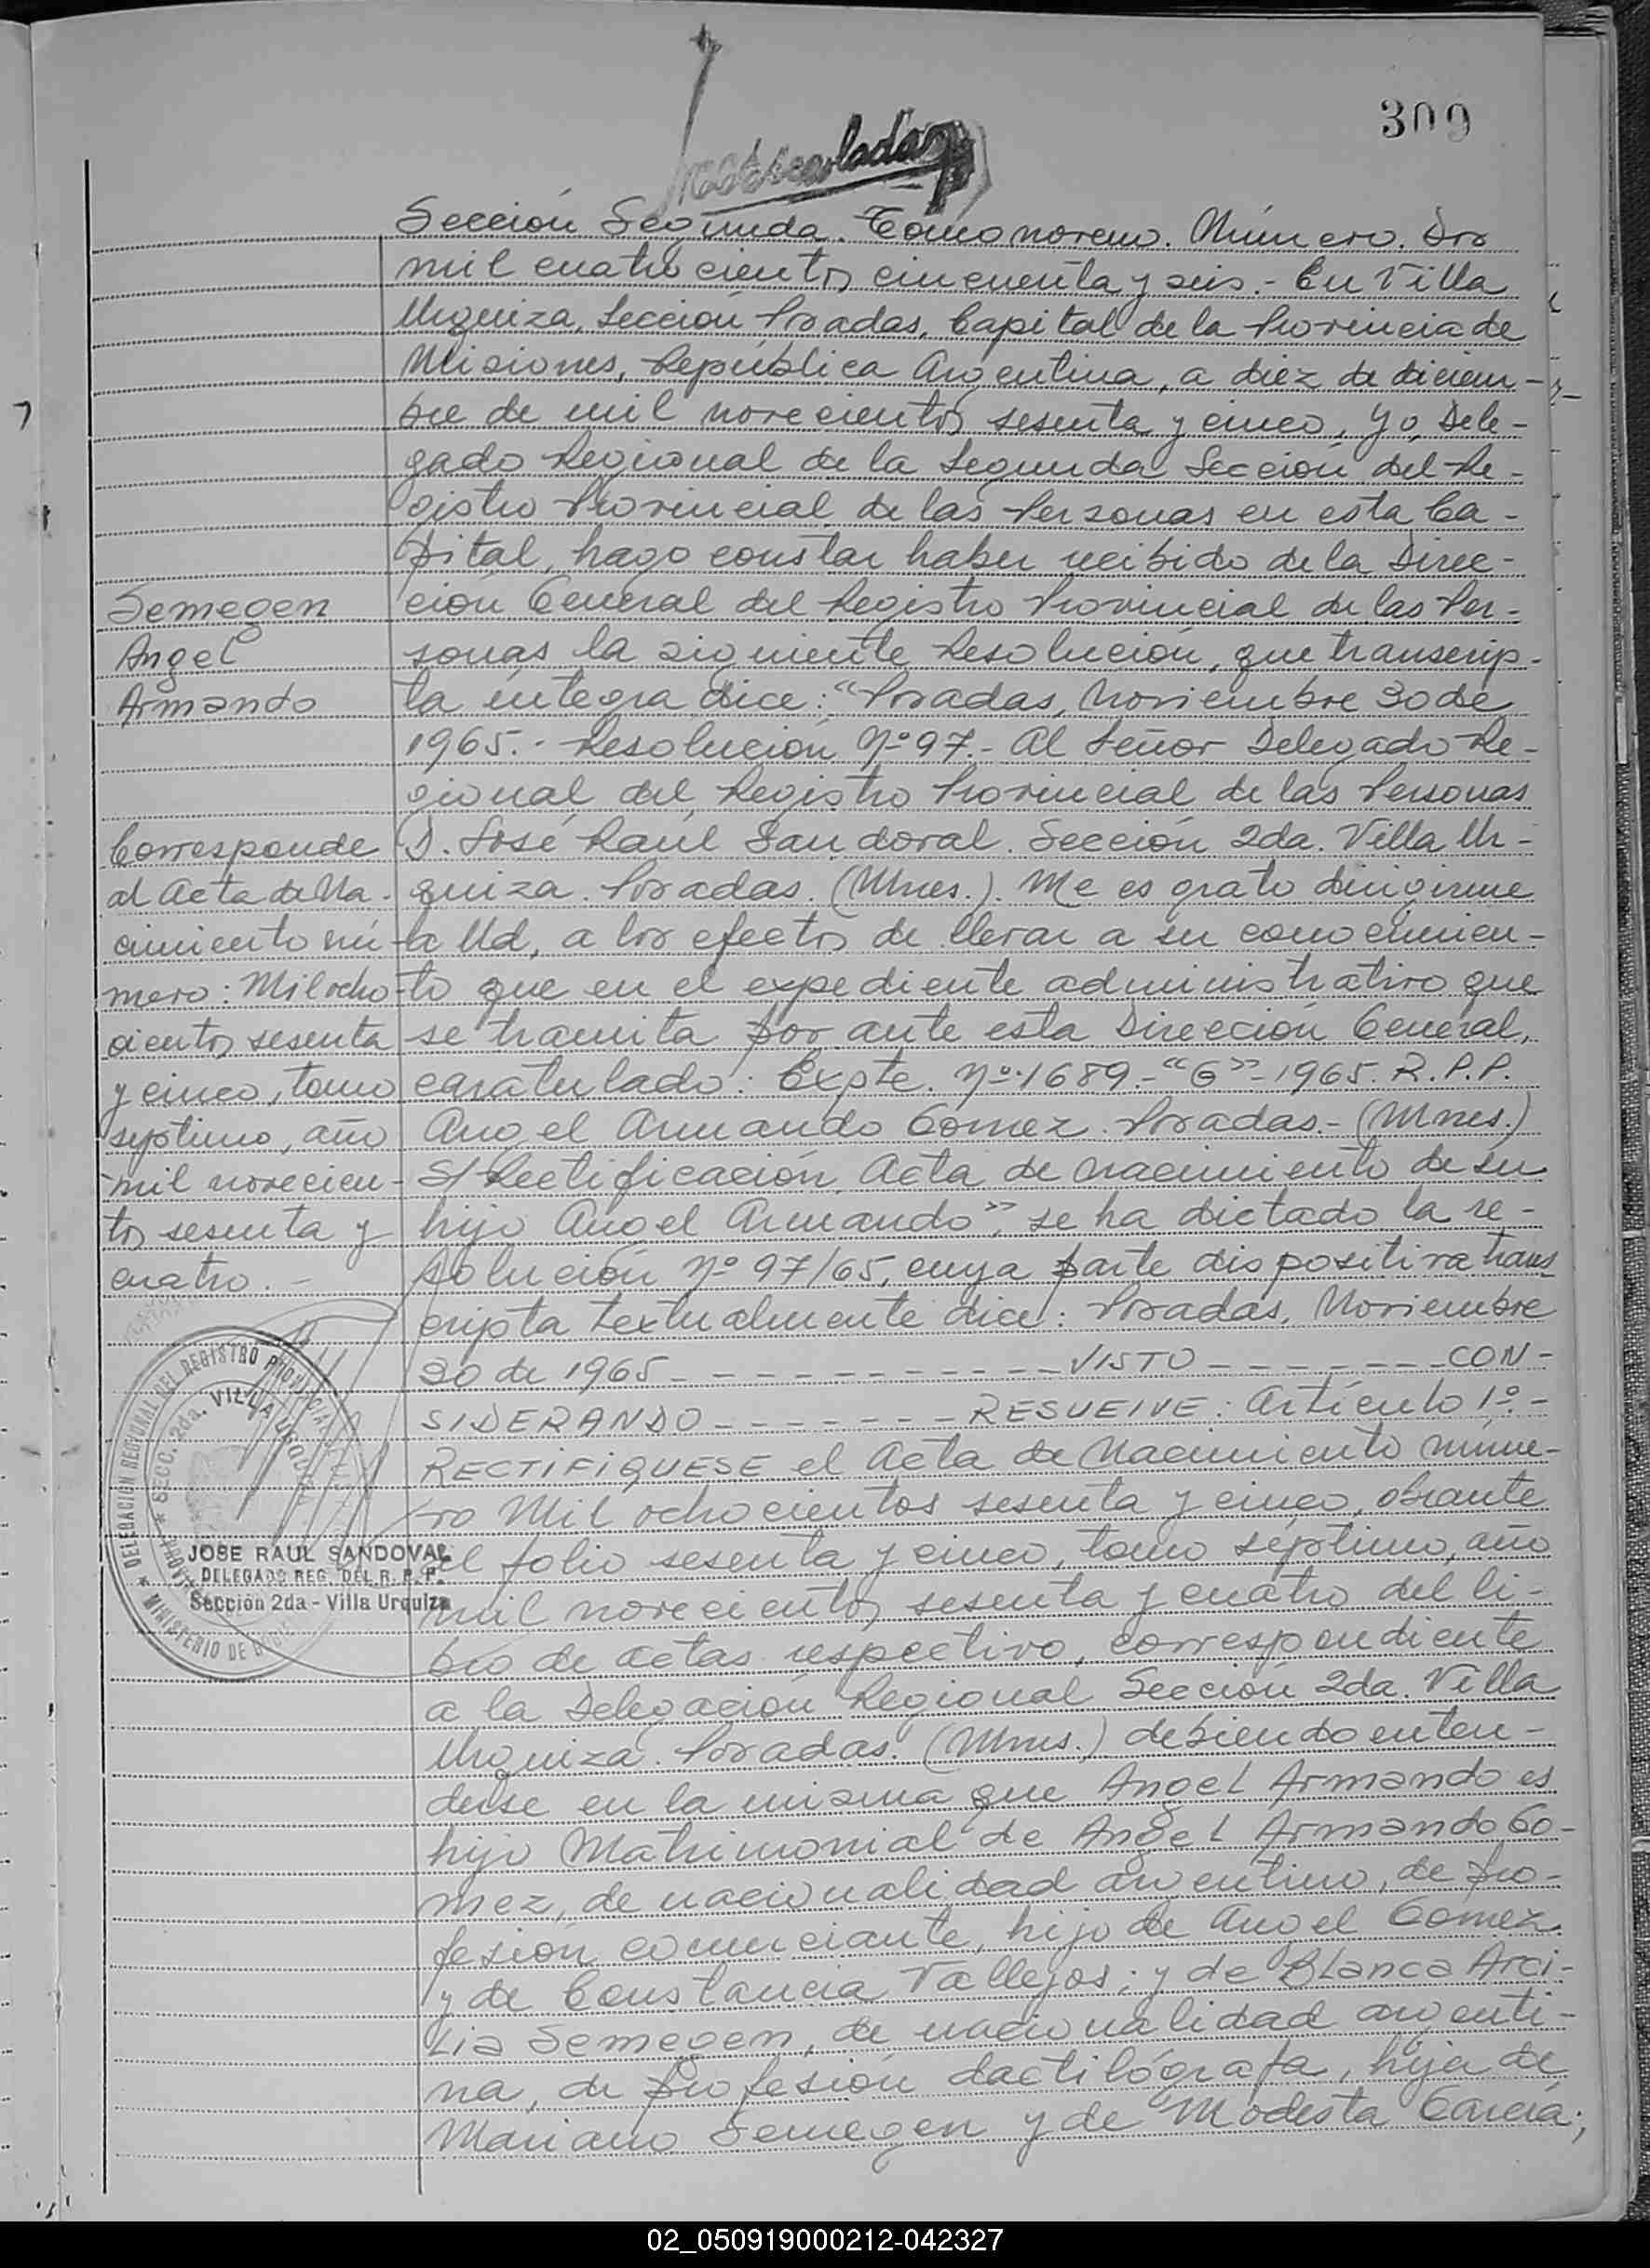 309
Sección Segunda. Tomo noveno. Número. Dos
mil cuatrocientos cincuenta y seis.- En Villa
Urquiza, Sección Posadas, Capital de la Provincia de
Misiones, República Argentina, a diez de diciem-
bre de mil novecientos sesenta y cinco, Yo, Dele-
gado Regional de la Segunda Sección del Re-
gistro Provincial de las Personas en esta Ca-
pital, hago constar haber recibido de la Direc-
ción General del Registro Provincial de las Per-
sonas la siguiente Resolución, que transcrip-
ta íntegra dice: "Posadas, Noviembre 30 de
1965.- Resolución Nº 97.- Al Señor Delegado Re-
gional del Registro Provincial de las Personas
D. José Raúl Sandoval. Sección 2da. Villa Ur-
quiza. Posadas. (Mnes.). Me es grato dirigirme
a Ud, a los efectos de llevar a su conocimien-
to que en el expediente administrativo que
se tramita por ante esta Dirección General,
caratulado: Expte. Nº 1689.-"G"-1965. R.P.P.
Angel Armando Gomez. Posadas.- (Mnes.)
S/ Rectificación Acta de nacimiento de su
hijo Angel Armando", se ha dictado la re-
solución Nº 97/65, cuya parte dispositiva trans
cripta textualmente dice: Posadas, Noviembre
30 de 1965 - - - - - - - - - - - VISTO - - - - - - - CON-
SIDERANDO - - - - - - - RESUELVE: Artículo 1º.-
RECTIFIQUESE el Acta de Nacimiento núme-
ro Mil ochocientos sesenta y cinco, obrante
al folio sesenta y cinco, tomo séptimo, año
mil novecientos sesenta y cuatro del li-
bro de actas respectivo, correspondiente
a la Delegación Regional Sección 2da. Villa
Urquiza. Posadas. (Mnes.) debiendo enten-
derse en la misma que Angel Armando es
hijo Matrimonial de Angel Armando Go-
mez, de nacionalidad argentino, de pro-
fesión comerciante, hijo de Angel Gomez
y de Constancia Vallejos; y de Blanca Arci-
lia Semegen, de nacionalidad argenti-
na, de profesión dactilógrafa, hija de
Mariano Semegen y de Modesta García;
Semegen
Angel
Armando
Corresponde
al Acta de Na-
cimiento nú-
mero: Mil ocho-
cientos sesenta
y cinco, tomo
séptimo, año
mil novecien-
tos sesenta y
cuatro.-
DELEGACION REGIONAL DEL REGISTRO PROVINCIAL
SECC. 2da. VILLA URQUIZA
MINISTERIO DE
JOSE RAUL SANDOVAL
DELEGADO REG. DEL R. P. P.
Sección 2da - Villa Urquiza
02_050919000212-042327